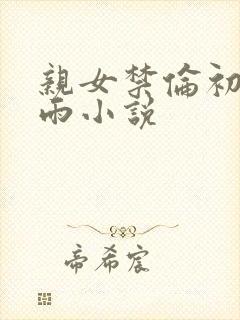 親女禁倫初
雨小說
帝希宸